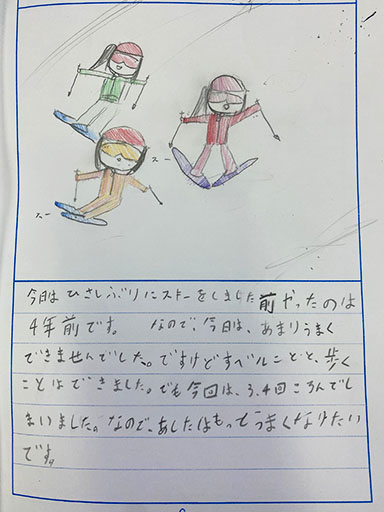 スー
スー
今日はひさしぶりにスキーをしました前やったのは
4年前です。 なので、今日は、あまりうまく
できませんでした。ですけどすべルことと、歩く
ことはできました。でも今回は、3、4回ころんでし
まいました。なので、あしたはもっとうまくなりたい
です。